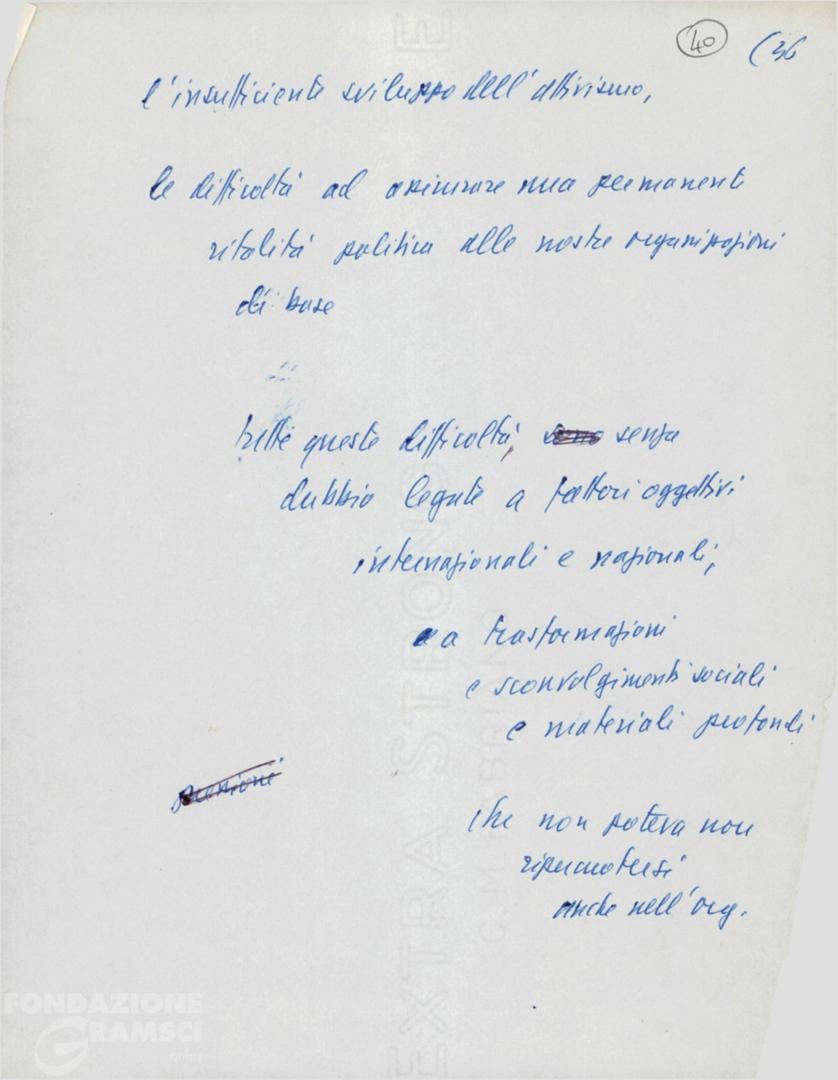 40 (36
l'insufficiente sviluppo dell'attivismo,
le difficoltà ad assicurare una permanente
vitalità politica alle nostre organizzazioni
di base
tutte queste difficoltà, sono senza
dubbio legate a fattori oggettivi
internazionali e nazionali;
a trasformazioni
e sconvolgimenti sociali
e materiali profondi
che non poteva non
ripercuotersi
anche nell'org.
EXTRA STRONG E
FABRIANO
FONDAZIONE
GRAMSCI
onlus